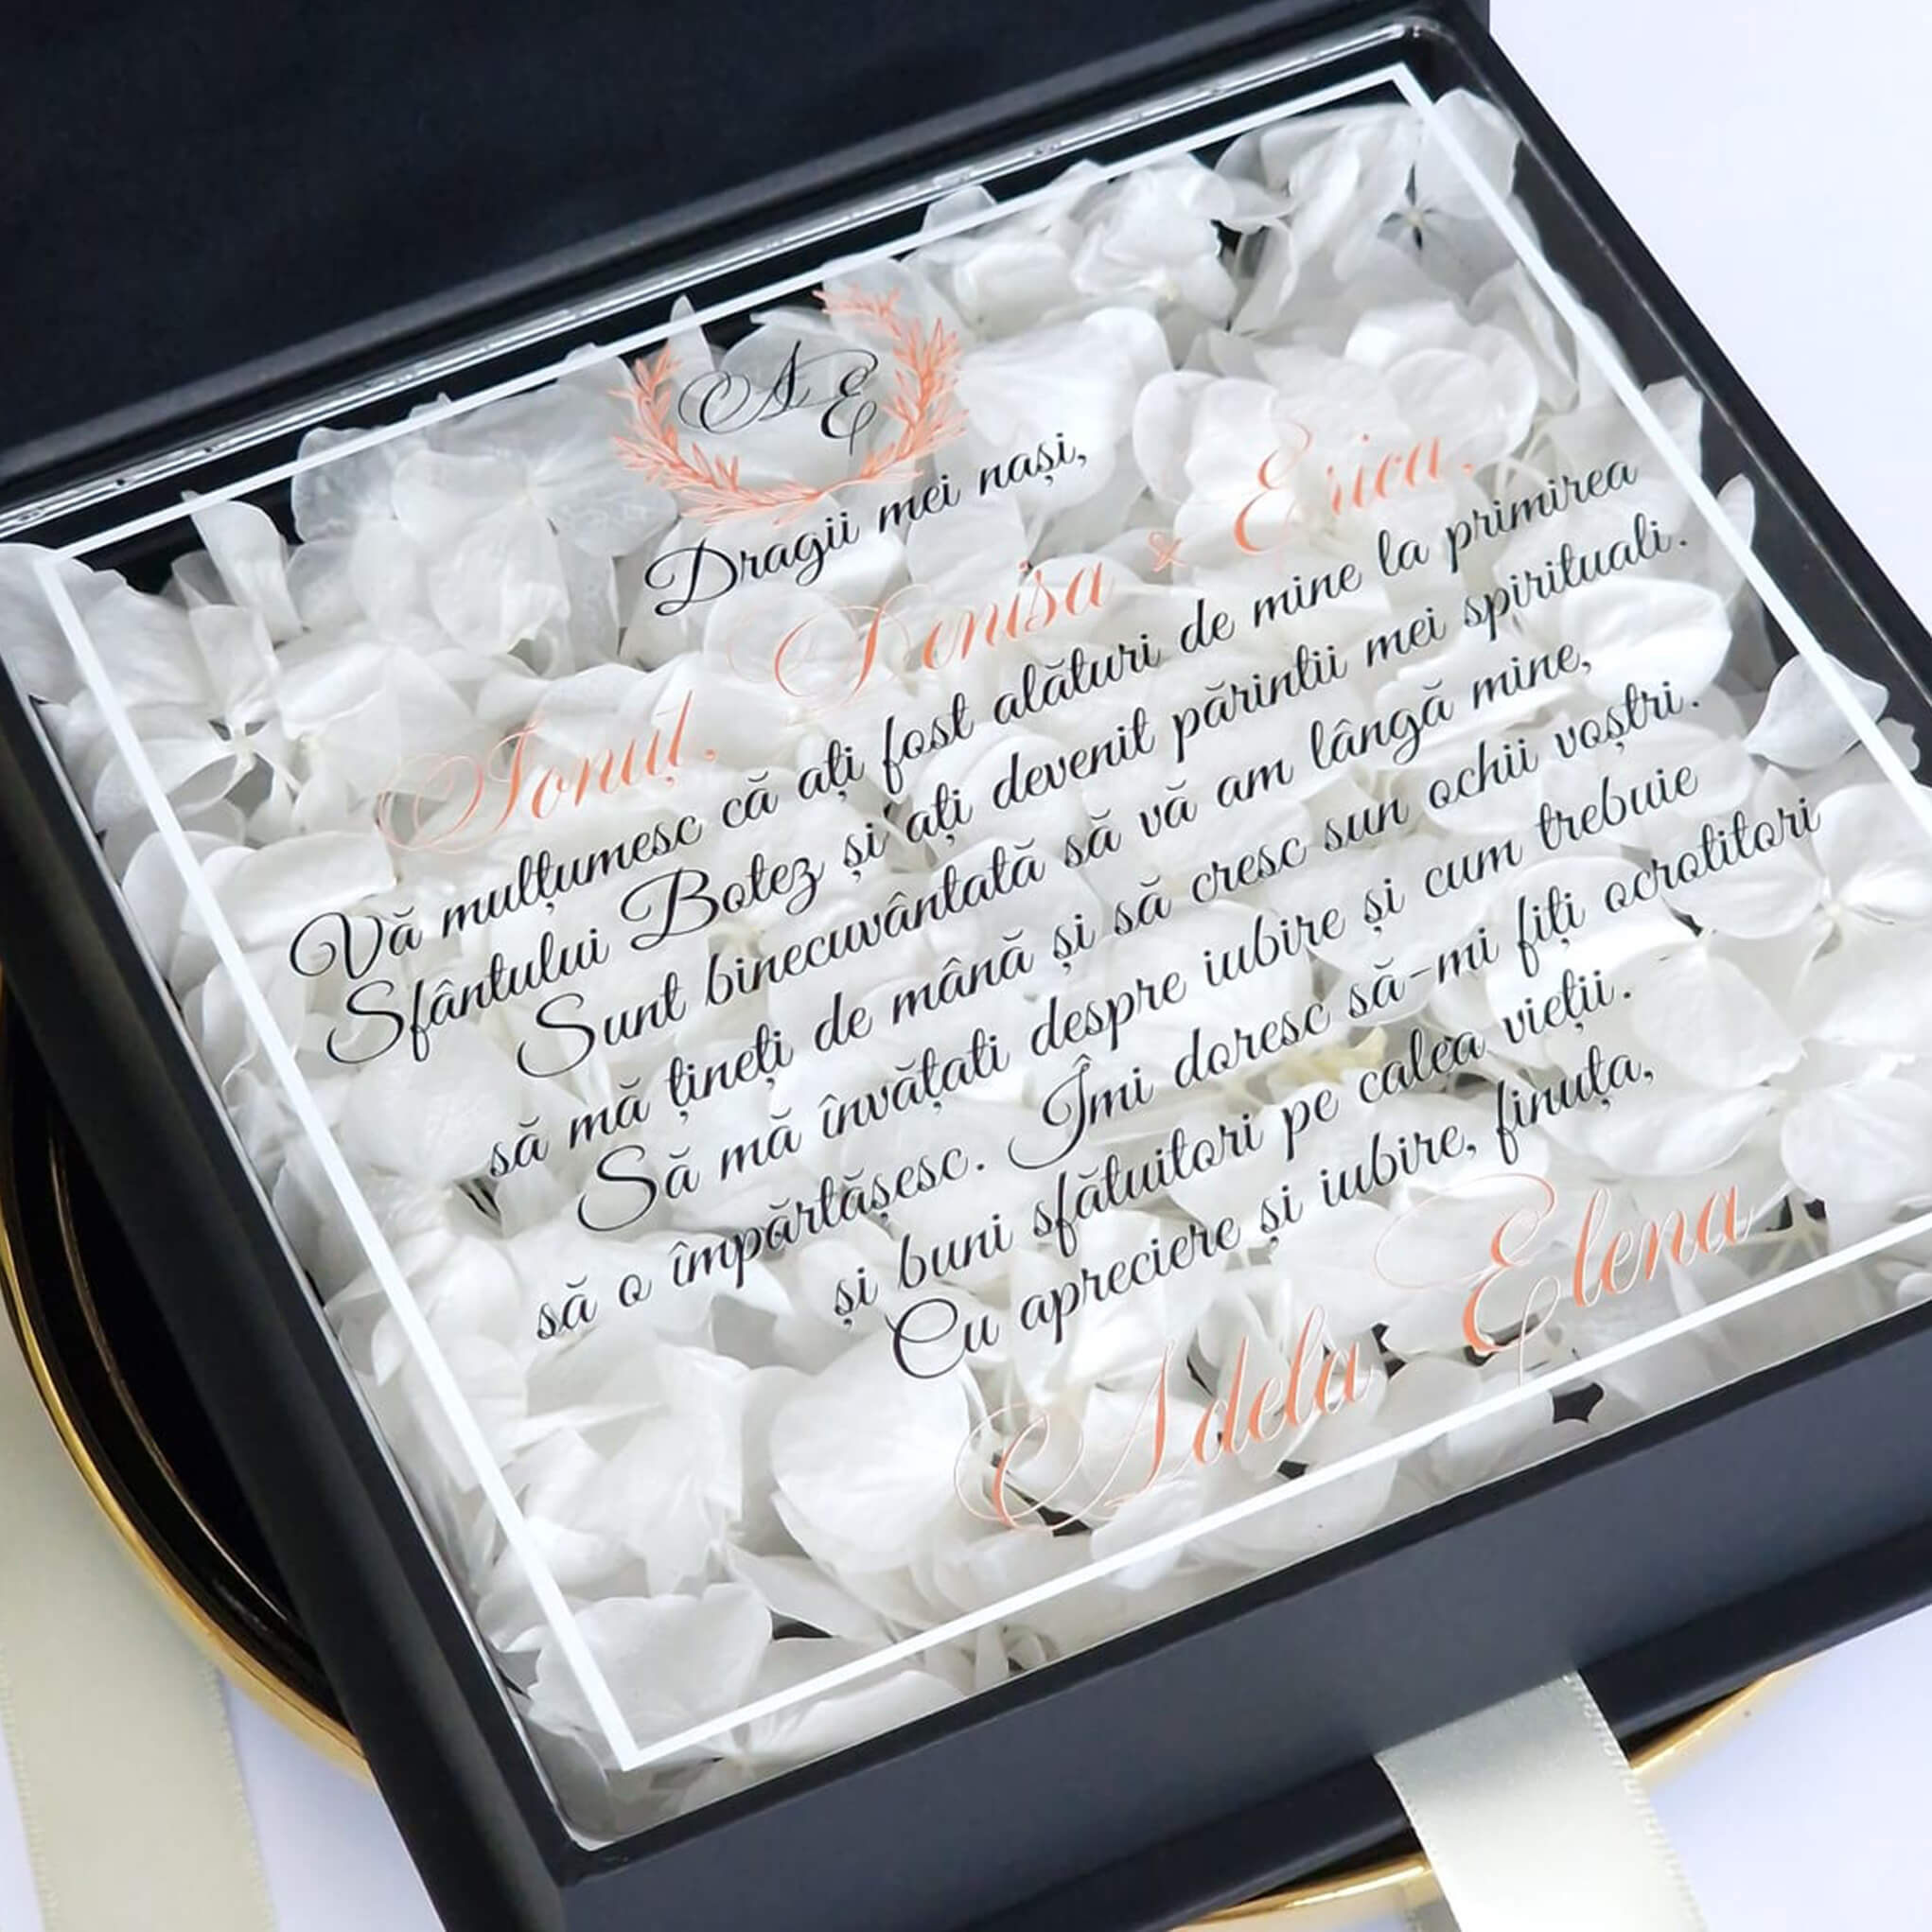 A E
Dragii mei nași,
Ionuț, Denisa & Erica,
Vă mulțumesc că ați fost alături de mine la primirea
Sfântului Botez și ați devenit părintii mei spirituali.
Sunt binecuvântată să vă am lângă mine,
să mă țineți de mână și să cresc sun ochii voștri.
Să mă învățati despre iubire și cum trebuie
să o împărtășesc. Îmi doresc să-mi fiți ocrotitori
și buni sfătuitori pe calea vieții.
Cu apreciere și iubire, finuța,
Adela Elena